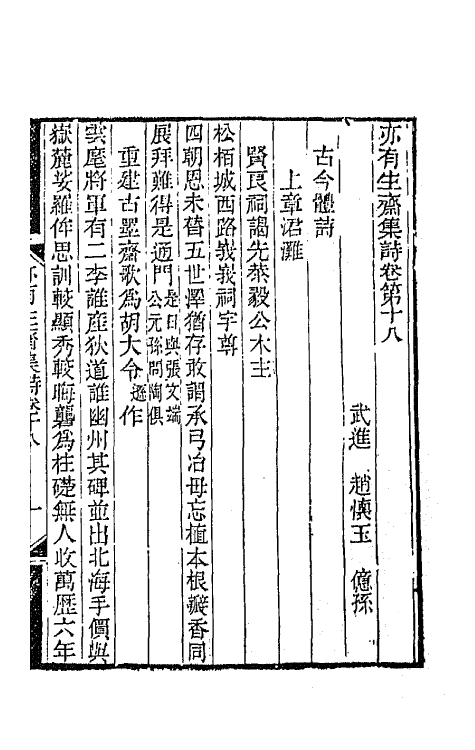 亦有生齋集詩卷第十八
武進 趙懷玉 億孫
古今體詩
上章涒灘
賢良祠謁先恭毅公木主
松栢城西路峩峩祠宇尊
四朝恩未替五世澤猶存敢謂承弓冶毋忘植本根瓣香同
展拜難得是通門是日與張文端公元孫問陶俱
重建古墨齋歌爲胡大令遜作
雲麾將軍有二李誰產狄道誰幽州其碑並出北海手價與
嶽麓娑羅侔思訓較顯秀較晦礱爲柱礎無人收萬歷六年
亦有生齋集詩卷十八 一